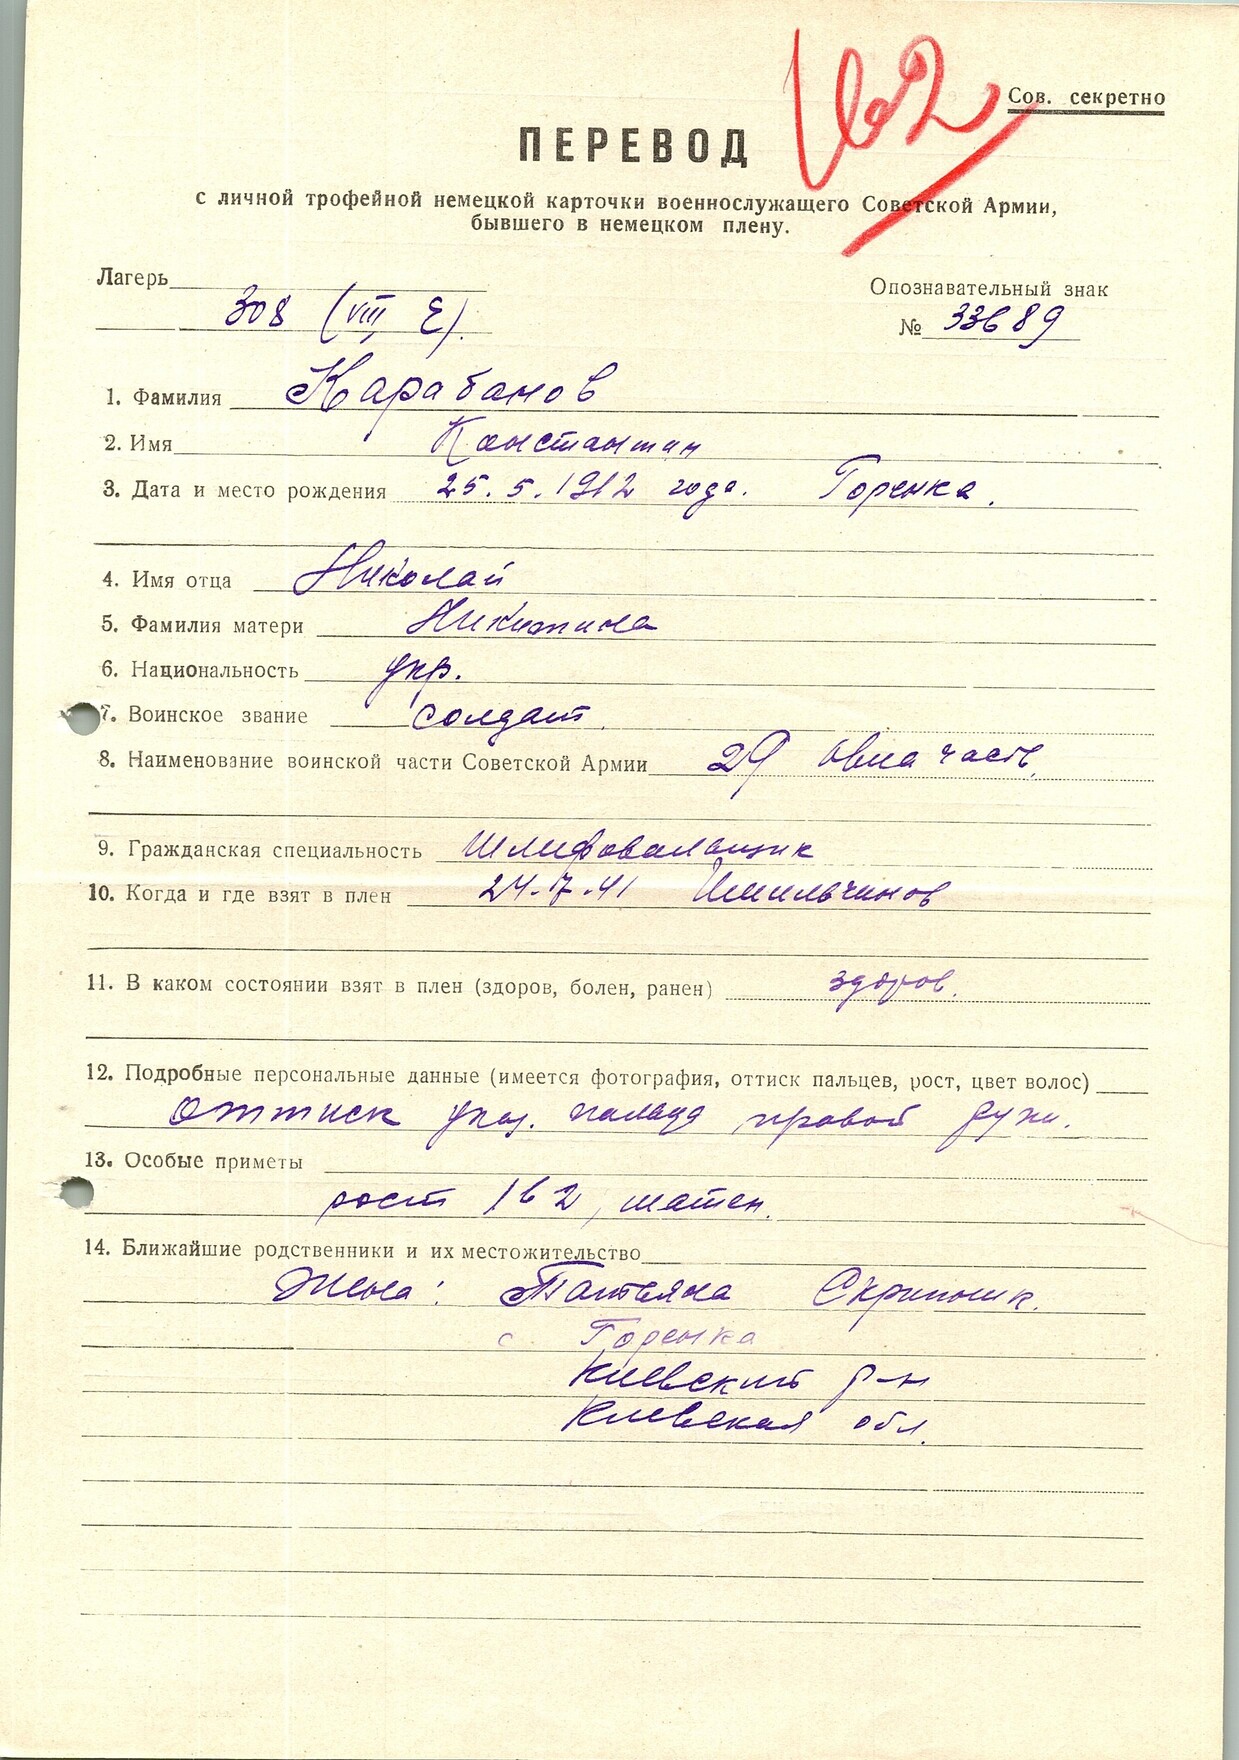 Сов. секретно
ПЕРЕВОД
с личной трофейной немецкой карточки военнослужащего Советской Армии,
бывшего в немецком плену.
Лагерь
308 (VIII E).
Опознавательный знак
№ 33689
1. Фамилия Карабанов
2. Имя Константин
3. Дата и место рождения 25.5.1912 года. Горенка.
4. Имя отца Николай
5. Фамилия матери Никитина
6. Национальность укр.
7. Воинское звание солдат.
8. Наименование воинской части Советской Армии 29 авиа часть.
9. Гражданская специальность Шлифовальщик
10. Когда и где взят в плен 24.7.41
11. В каком состоянии взят в плен (здоров, болен, ранен) здоров.
12. Подробные персональные данные (имеется фотография, оттиск пальцев, рост, цвет волос)
оттиск указ. пальца правой руки.
13. Особые приметы
рост 162, шатен.
14. Ближайшие родственники и их местожительство
Жена: Татьяна
с. Горенка
Киевский р-н
Киевская обл.